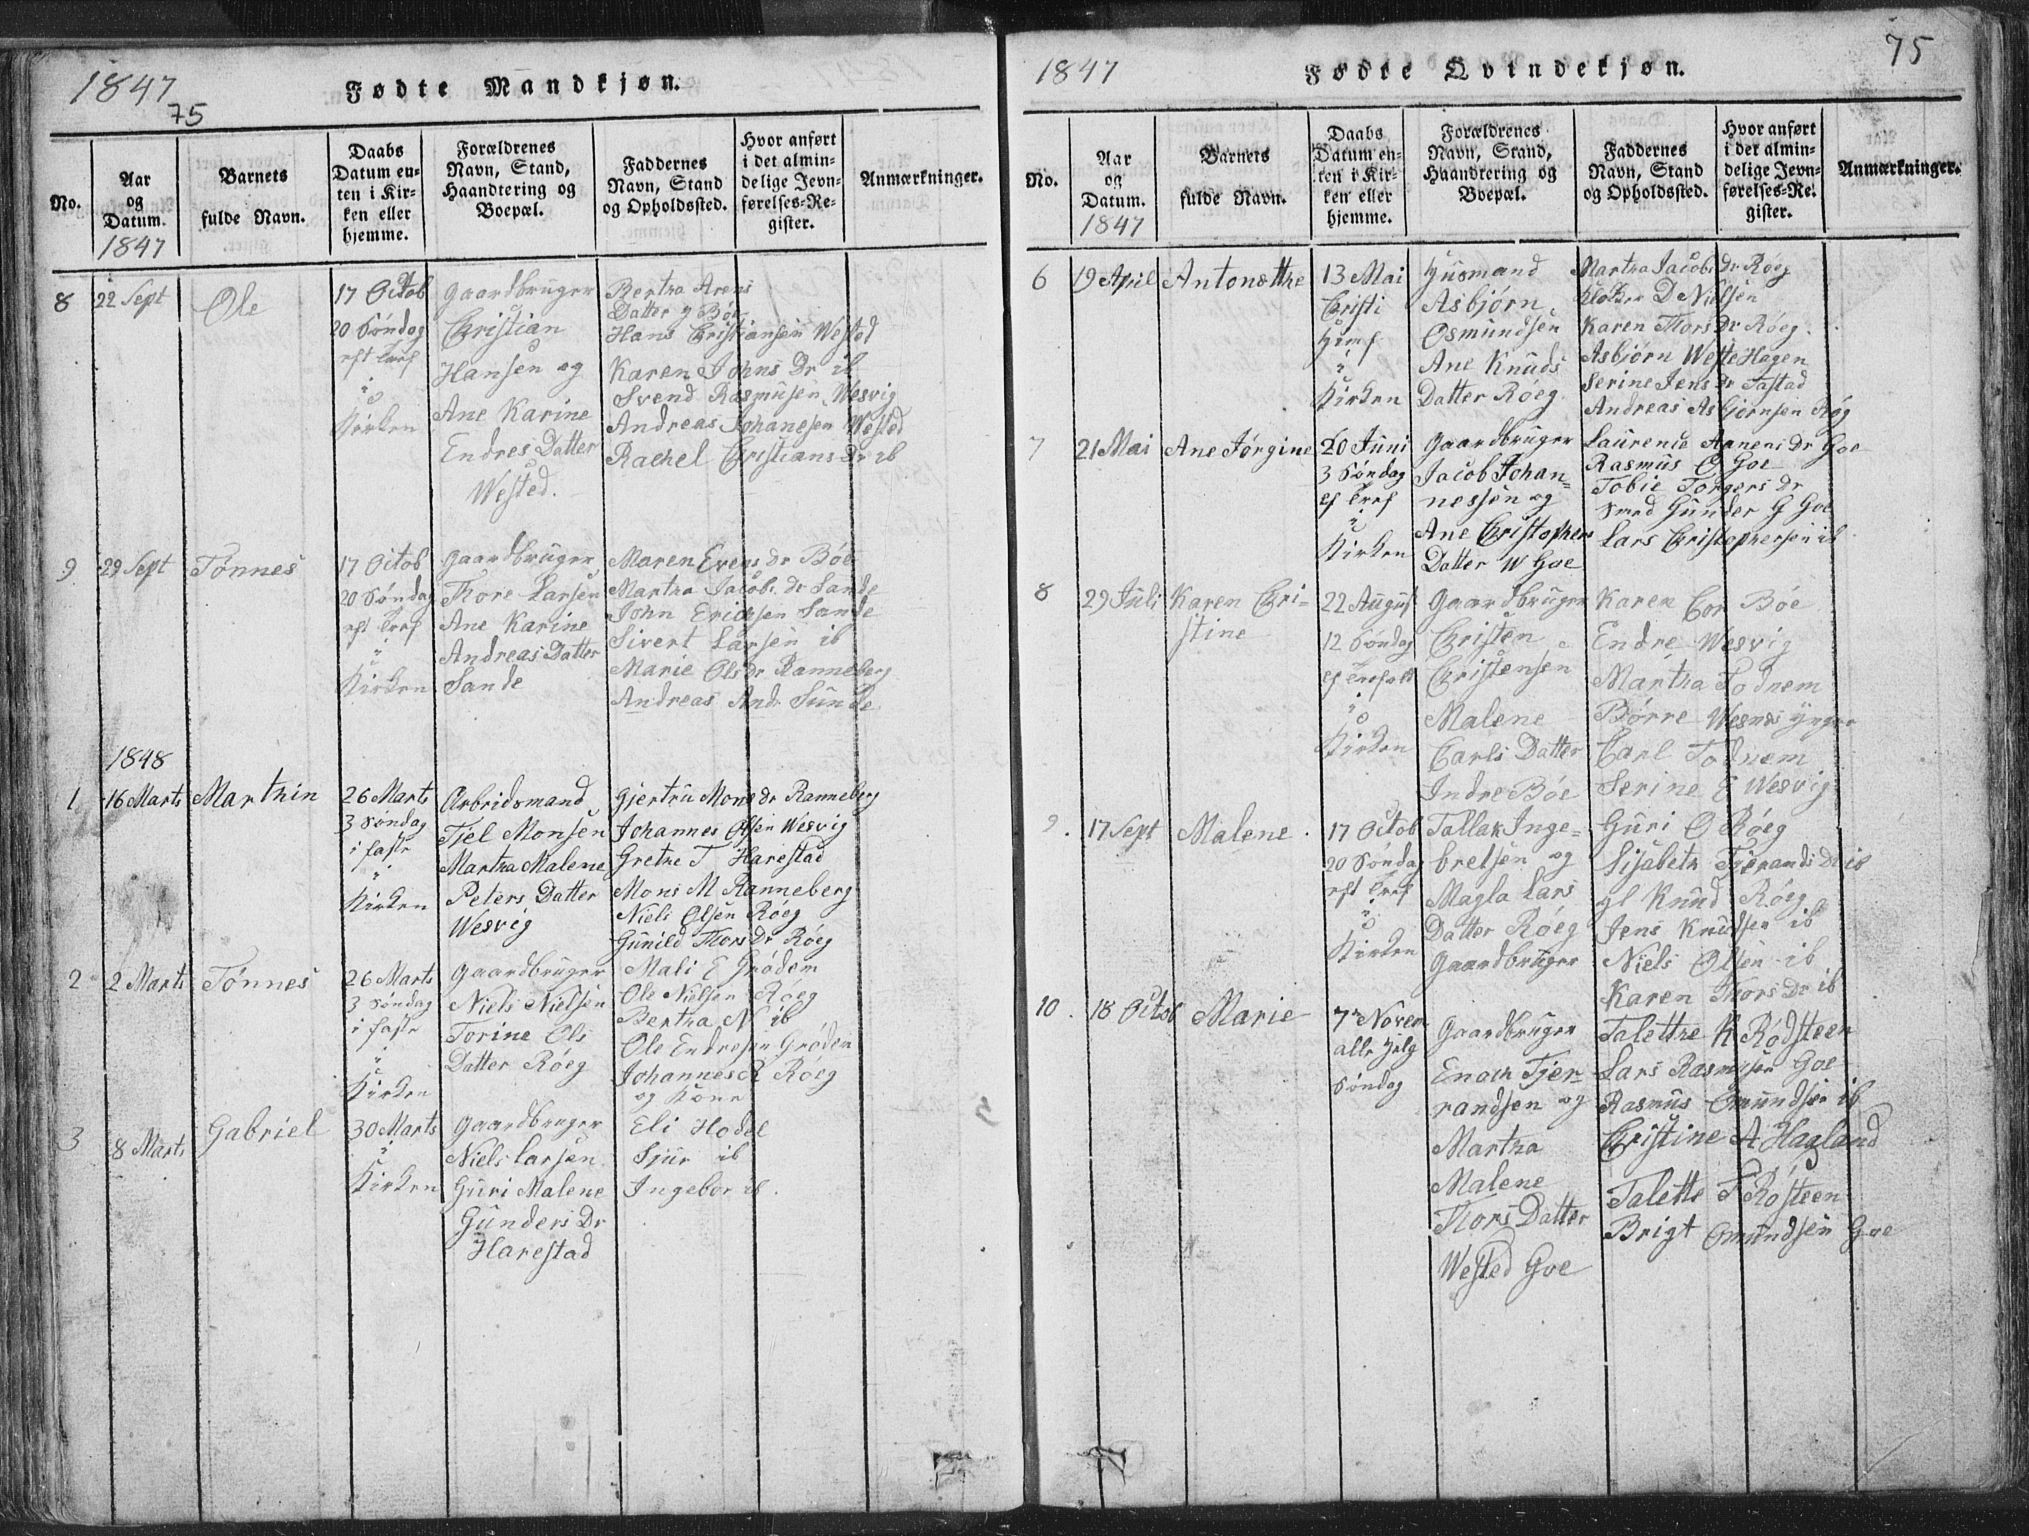 1847
75
Fødte Mandkjøn.
No.
Aar
og
Datum.
1847
Barnets
fulde Navn.
Daabs
Datum en-
ten i Kir-
ken eller
hjemme.
Forældrenes
Navn, Stand,
Haandtering og
Boepæl.
Faddernes
Navn, Stand
og Opholdssted.
Hvor anført
i det almin-
delige Jevn-
førelses-Re-
gister.
Anmærkninger.
8
22 Sept
Ole
17 Octob
20 Søndag
eft Tref
i
Kirken
Gaardbruger
Christian
Hansen og
Ane Karine
Endres Datter
Wested.
Bertha Arens
Datter
Hans Christiansen Wested
Karen Johns Dr ib
Svend Rasmusen Wesvig
Andreas Johanesen Wested
Rachel Christians Dr ib
9
29 Sept
Tønnes
17 Octob
20 Søndag
eft Tref
i
Kirken
Gaardbruger
Thore Larsen
Ane Karine
Andreas Datter
Sande
Maren Evens dr Bøe
Martha Jacobs dr Sande
John Ericksen Sande
Sivert Larsen ib
Marie Ols dr Ranneberg
Andreas And Sunde
1848
1
16 Marts
Marthin
26 Marts
3 Søndag
i faste
i
Kirken
Arbeidsmand
Tjel Monsen
Martha Malene
Peters Datter
Wesvig
Gjertru Mons dr Ranneberg
Johannes Olsen Wesvig
Grethe T Harestad
Mons M Ranneberg
Niels Olsen Røeg
Gunild Thors Dr Røeg
2
2 Marts
Tønnes
26 Marts
3 Søndag
i faste
i
Kirken
Gaardbruger
Niels Nielsen
Torine Ols
Datter Røeg
Mali E Grødem
Ole Nielsen Røeg
Bertha N ib
Ole Endresen Grødem
Johannes R Røeg
og Kone
3
8 Marts
Gabriel
30 Marts
i
Kirken
Gaardbruger
Niels Larsen
Guri Malene
Gunders Dr
Harestad
Eli Hodel
Sjur ib
Ingebor ib.
1847
75
Fødte Qvindekjøn.
No.
Aar
og
Datum.
1847
Barnets
fulde Navn.
Daabs
Datum en-
ten i Kir-
ken eller
hjemme.
Forældrenes
Navn, Stand,
Haandtering og
Boepæl.
Faddernes
Navn, Stand
og Opholdssted.
Hvor anført
i det almin-
delige Jevn-
førelses-Re-
gister.
Anmærkninger.
6
19 April
Antonætthe
13 Mai
Christi
Himf
i
Kirken
Husmand
Asbjørn
Osmundsen
Ane Knuds
Datter Røeg
Martha Jacobs Dr Røeg
Klokker D Nielsen
Karen Thors Dr Røeg
Asbjørn Weste Hagen
Serine Jens Dr Tastad
Andreas Asbjørnsen Røg
7
21 Mai
Ane Jørgine
20 Juni
3 Søndag
ef Tref
i
Kirken
Gaardbruger
Jacob Johan=
nessen og
Ane Christophers
Datter W Goe
Laurence Aanens Dr Goe
Rasmus O Goe
Tobie Torgers dr
Smed Gunder G Goe
Lars Christophersen ib
8
29 Juli
Karen Chri-
stine
22 August
12 Søndag
ef Trefold
i
Kirken
Gaardbruger
Christen
Christensen
Malene
Carls Datter
Indre Bøe
Karen Cor Bøe
Endre Wesvig
Martha Todnem
Børre Wesnes Yngre
Carl Todnem
Serine E Wesvig
9.
17 Sept
Malene.
17 Octob
20 Søndag
eft Tref
i
Kirken
Tallak Inge=
bretsen og
Magla Lars
Datter Røeg
Gaardbruger
Guri O Røeg
Lisabeth Tjerands Dr ib
gl Knud Røeg
Jens Knudsen ib
Niels Olsen ib
Karen Thors Dr ib
10.
18 Octob
Marie
7de Novem
alle Helg
Søndag
Gaardbruger
Enoch Tjer-
randsen og
Martha
Malene
Thors Datter
Wested Goe
Talette K Rødsteen
Lars Rasmusen Goe
Rasmus Omundsen ib
Christine A Hagland
Talette T Røsteen
Brigt Omundsen Goe